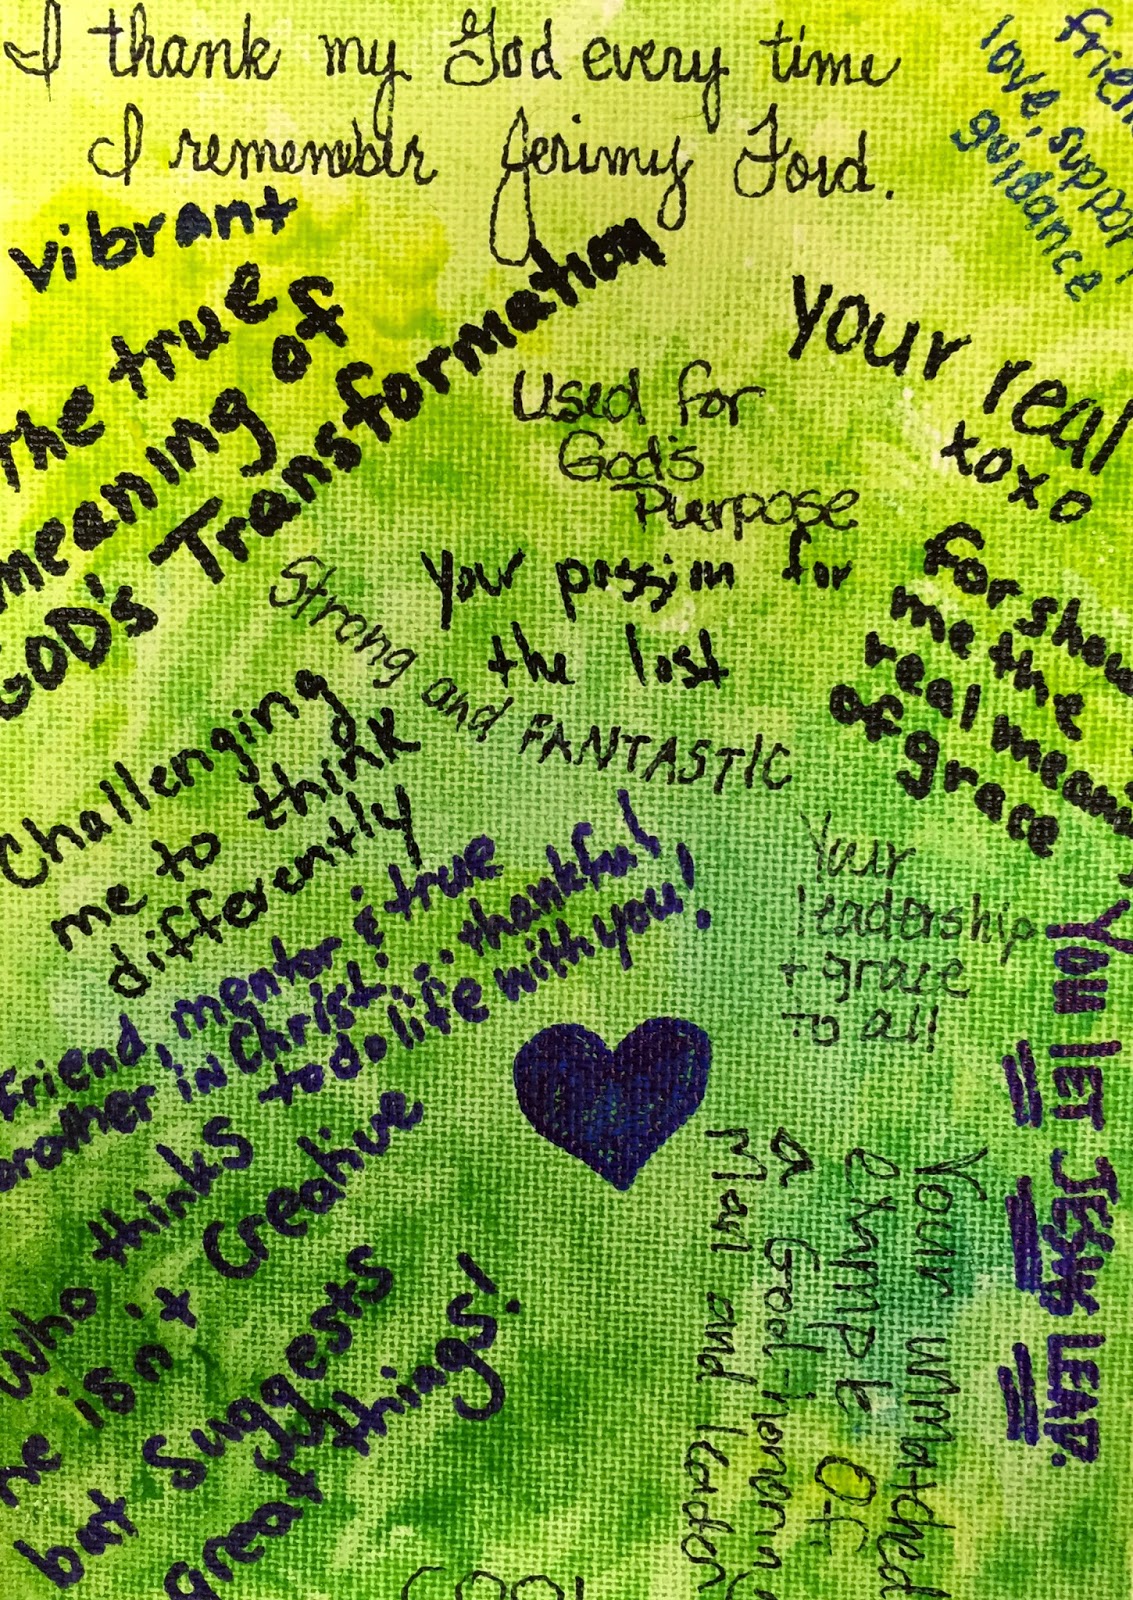 I thank my God every time
I rememebr Jerimy Ford.
love, support
guidance
vibrant
The true
meaning of
GOD's Transformation
your real
xoxo
Used for
God's
Purpose
Your passion for
the lost
Strong and FANTASTIC
For show
me the
real
of grace
Challenging
me to think
differently
Your
leadership
+ grace
to all
Friend, mentor & true
brother in Christ! thankful
to do life with you!
You LET JESUS LEAD.
Who thinks
he isn't Creative
but Suggests
great things!
Your unmatched
example of
a God-honoring
Man and leader